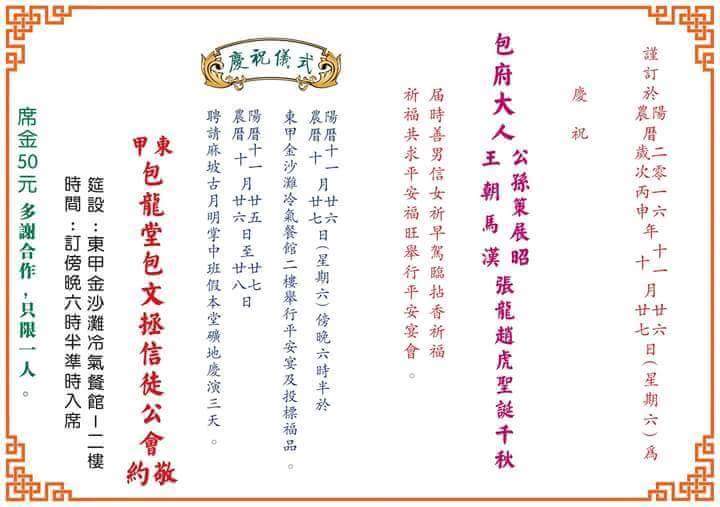 謹訂於陽曆二零一六年十一月廿六日(星期六)為
農曆歲次丙申年十月廿七
慶祝
包府大人公孫策展昭張龍趙虎聖誕千秋
王朝馬漢
屆時善男信女祈早駕臨拈香祈福
祈福共求平安福旺舉行平安宴會。
慶祝儀式
陽曆十一月廿六日(星期六)傍晚六時半於
農曆十月廿七
東甲金沙灘冷氣餐館二樓舉行平安宴及投標福品。
陽曆十一月廿五日至廿七日
農曆十月廿六日至廿八
聘請麻坡古月明掌中班假本堂礦地慶演三天。
東甲包龍堂包文拯信徒公會敬約
筵設:東甲金沙灘冷氣餐館-二樓
時間:訂傍晚六時半準時入席
席金50元多謝合作,只限一人。